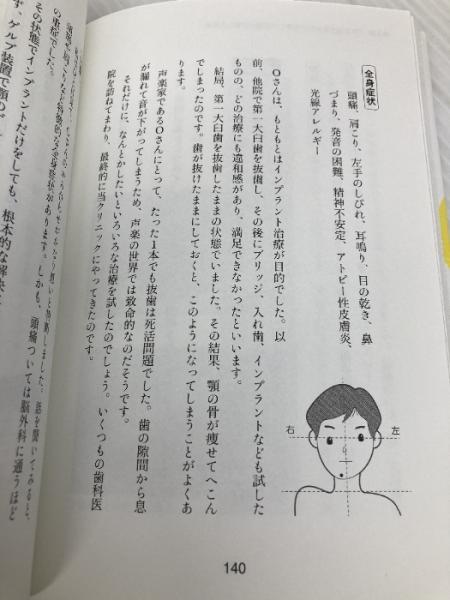 全身症状
頭痛、肩こり、左手のしびれ、耳鳴り、目の乾き、鼻
づまり、発音の困難、精神不安定、アトピー性皮膚炎、
光線アレルギー
右
左
Oさんは、もともとはインプラント治療が目的でした。以
前、他院で第一大臼歯を抜歯し、その後にブリッジ、入れ歯、インプラントなども試した
ものの、どの治療にも違和感があり、満足できなかったといいます。
結局、第一大臼歯を抜歯したままの状態でいました。その結果、顎の骨が痩せてへこん
でしまったのです。歯が抜けたままにしておくと、このようになってしまうことがよくあ
ります。
声楽家であるOさんにとって、たった1本でも抜歯は死活問題でした。歯の隙間から息
が漏れて音が下がってしまうため、声楽の世界では致命的なのだそうです。
それだけに、なんとかしたいといろいろな治療を試したのでしょう。いくつもの歯科医
院を訪ねてまわり、最終的に当クリニックにやってきたのです。
話を聞いてみると、
があります。しかも、頭痛ついては脳外科に通うほど
の重症でした。
その状態でインプラントだけをしても、根本的な解決
ず、ゲルブ装置で顎の
140